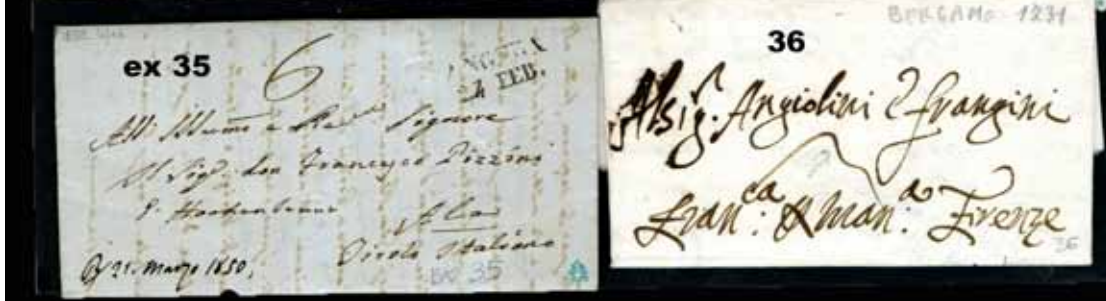 ex 35
6
4 FEB.
All' Illumo e Revo Signore
Il Sigr don Francesco Pizzini
Ala
Tirolo Italiano
21. Marzo 1850.
35
36
BERGAMO 1231
Al sigr. Angiolini e frangini
fran:ca & man:a Firenze
36